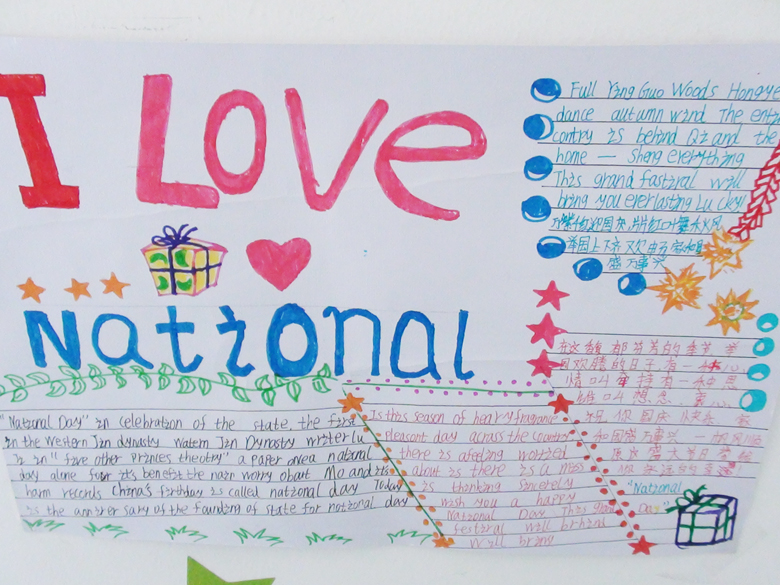 I Love
National
Full Ying Guo Woods Hongye
dance autumn wind The enti
contry is behind Qi and the
home — sheng everything
This grand fastiral will
bring you everlasting Lucky!
盛万事兴
"Natioral Day" in celebration of the state, the first
in the Western Jin dynasty watern Jin Dynasty writer lu
Ji in "five other Prinies theotry" a paper onea national
day alone for its benefit the nain worry obout Mo and its
harm records China's firthday is called national day Today
is the annirer sary of the founding of State for notional day
Is this season of hearry fragrance
pleasont day across the country
there is afeeling worried
about is there is a miss
is thinking sincerely
wish you a happy
National Day This grand
festiral will brhind
will bring
在这 郁芬芳的季节 举
国欢腾的日子 有一种
情叫 有一种思
叫想念
祝你国庆快乐
和国盛万事兴 一帆风顺
庆盛大节日
你永远的幸运
"National
Day"